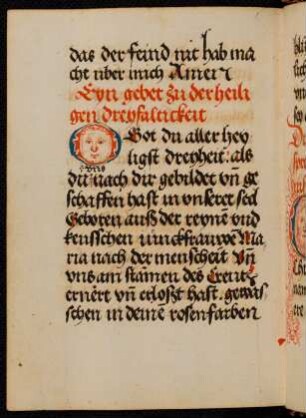 das der feind nit hab ma
cht uber mich Amen
Eyn gebet zu der heili
gen dreyfaltickeit
O Got du aller hey
ligst dreyheit. als
du uns nach dir gebildet vn̄ ge
schaffen hast in vnserer sel
Geboren auß der reyne vnd
keusschen iunckfrauwē Ma
ria nach der menscheit Vn̄
vns am stammen des Creutz
ernert vn̄ erloßt hast. gewas
schen in deine rosenfarben